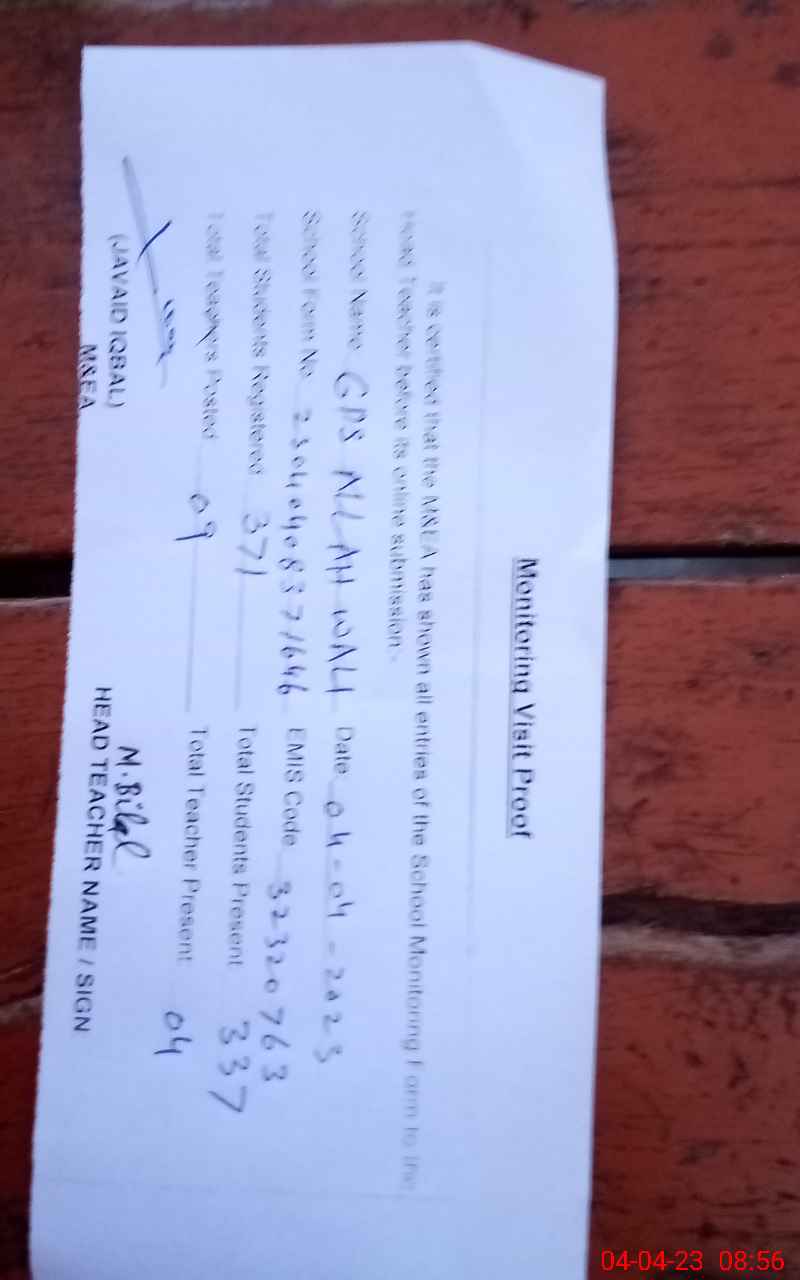 Monitoring Visit Proof
It is certified that the M&EA has shown all entries of the School Monitoring Form to the
Head Teacher before its online submission:-
School Name GPS ALLAH WALI Date 04-04-2023
School Form No. 23040408371646 EMIS Code 32320763
Total Students Registered 371 Total Students Present 337
Total Teachers Posted 09 Total Teacher Present 04
M.Bilal
(JAVAID IQBAL) HEAD TEACHER NAME / SIGN
M&EA
04-04-23 08:56